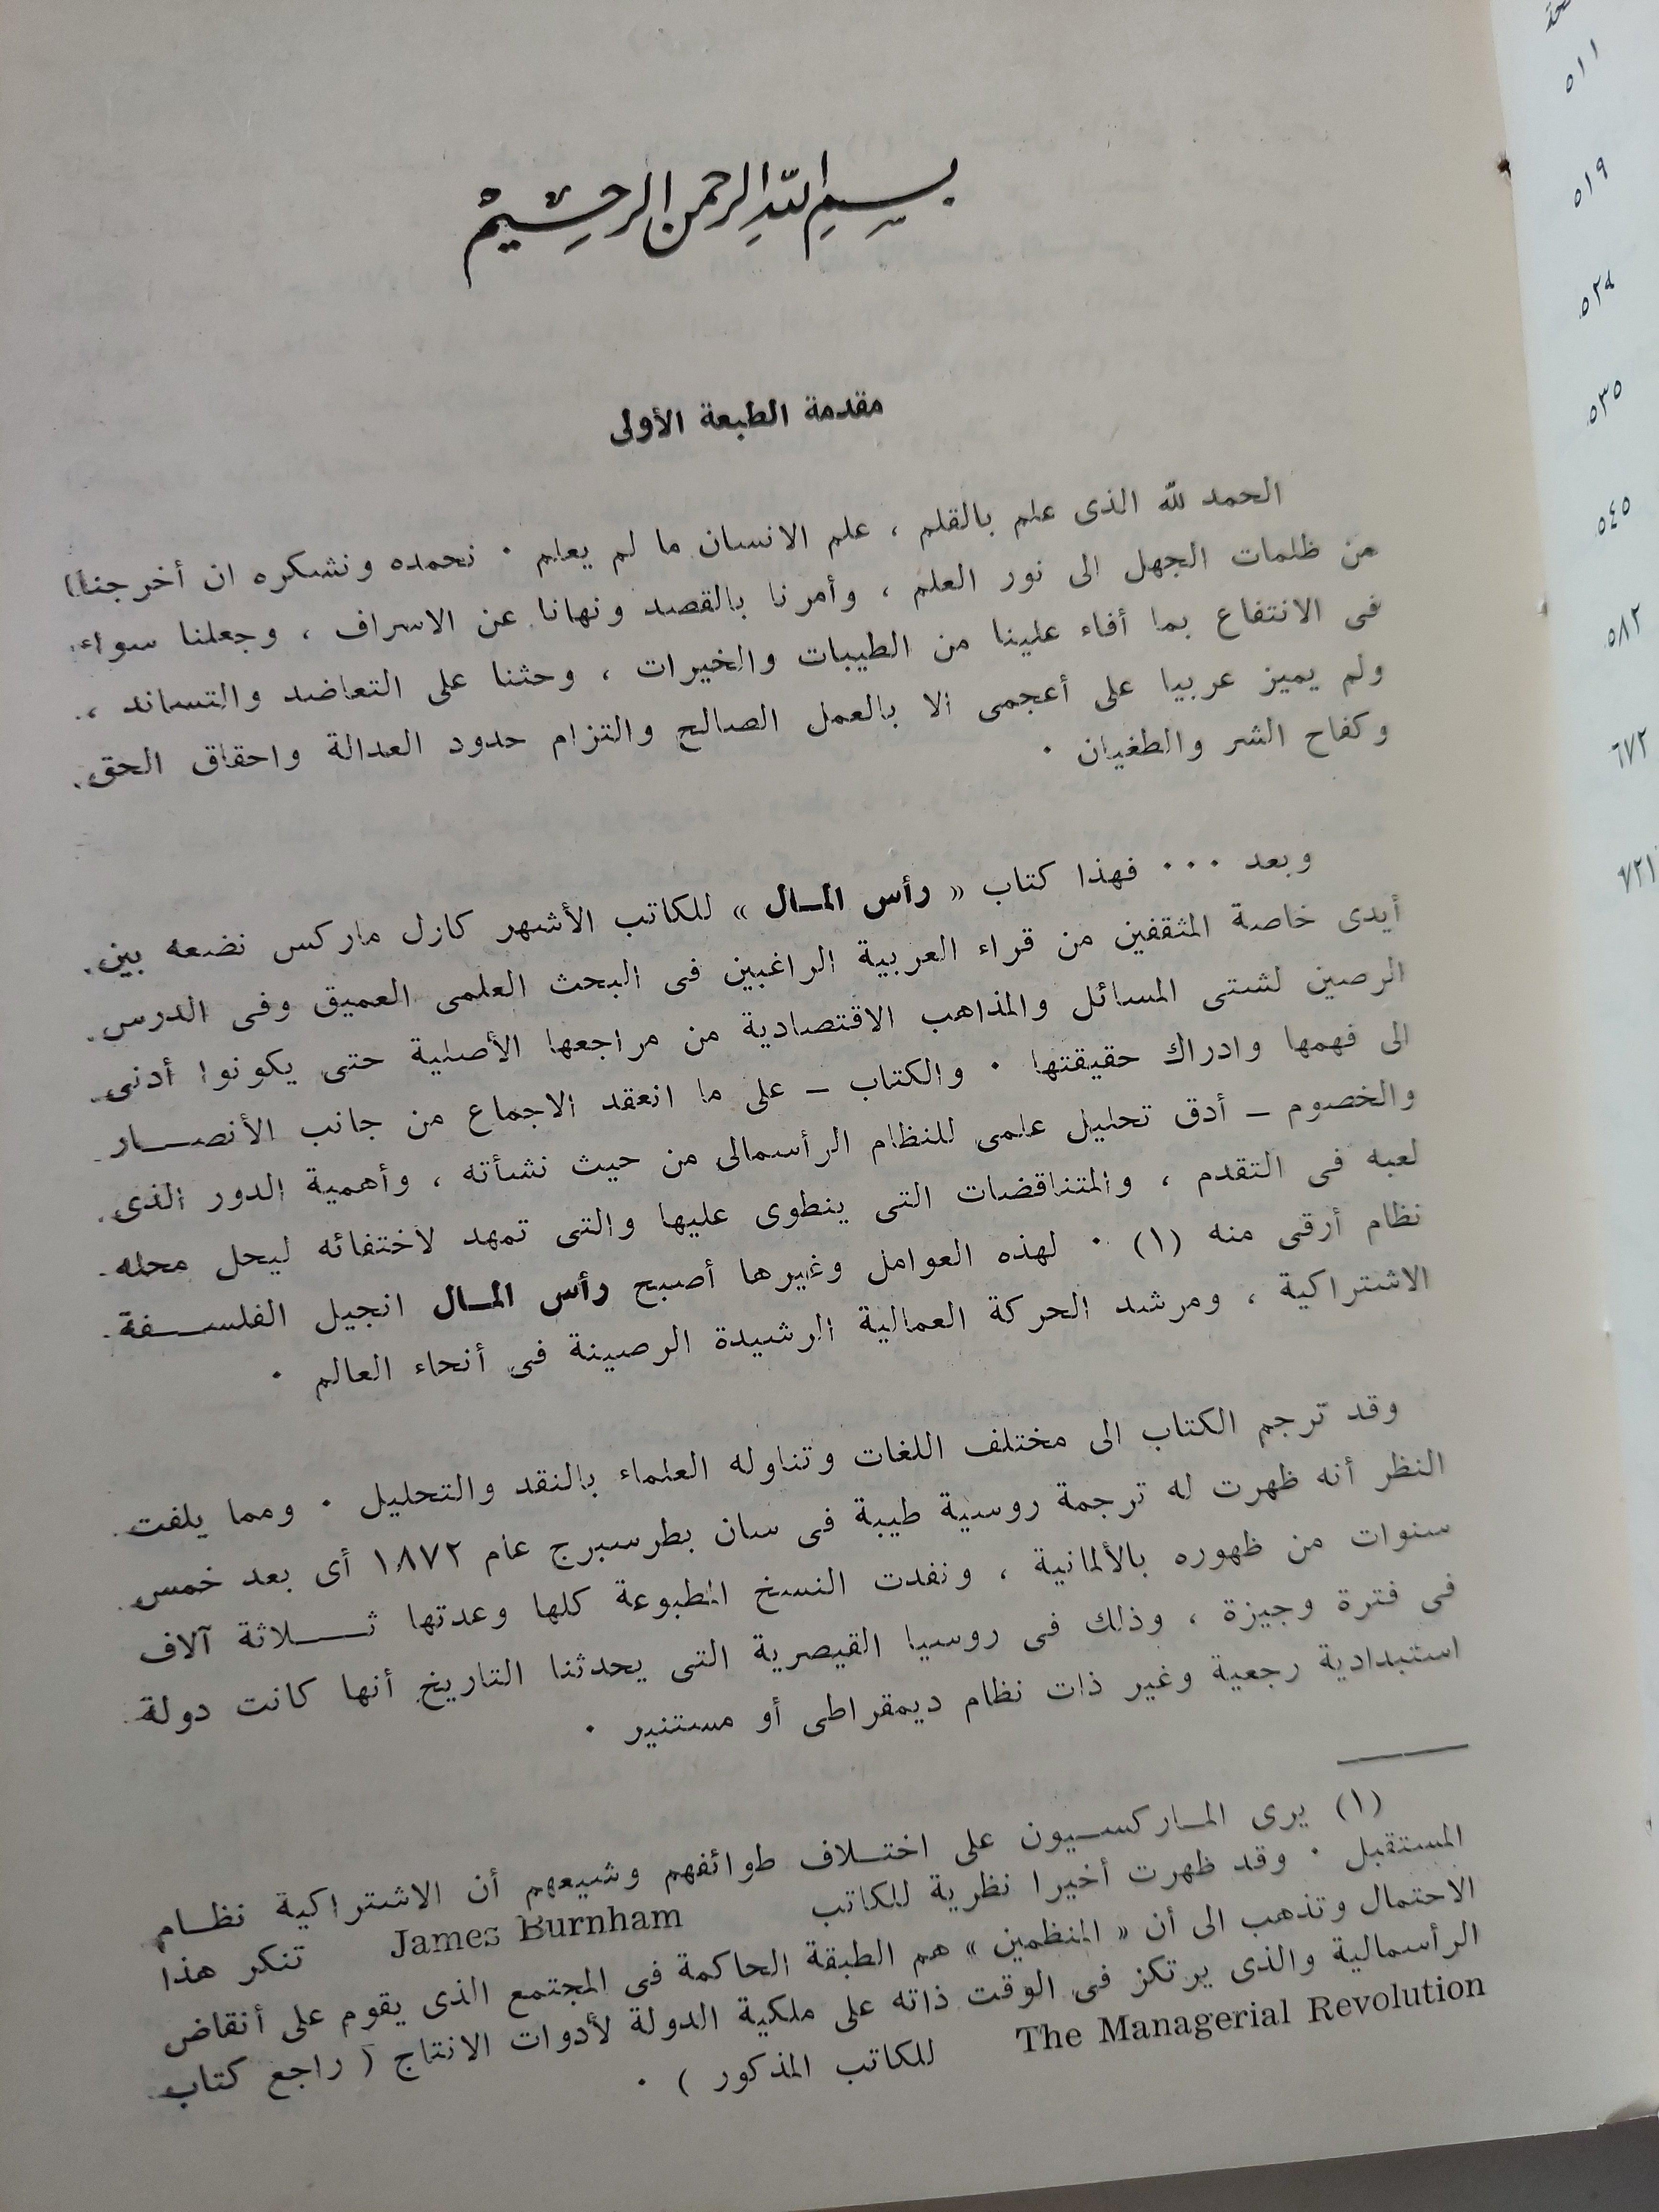 بسم الله الرحمن الرحيم
مقدمة الطبعة الأولى
الحمد لله الذى علم بالقلم ، علم الانسان ما لم يعلم . نحمده ونشكره ان أخرجنا
من ظلمات الجهل الى نور العلم ، وأمرنا بالقصد ونهانا عن الاسراف ، وجعلنا سواء
فى الانتفاع بما أفاء علينا من الطيبات والخيرات ، وحثنا على التعاضد والتساند ،
ولم يميز عربيا على أعجمى الا بالعمل الصالح والتزام حدود العدالة واحقاق الحق
وكفاح الشر والطغيان .
وبعد ... فهذا كتاب « رأس المال » للكاتب الأشهر كارل ماركس نضعه بين
أيدى خاصة المثقفين من قراء العربية الراغبين فى البحث العلمى العميق وفى الدرس
الرصين لشتى المسائل والمذاهب الاقتصادية من مراجعها الأصلية حتى يكونوا أدنى
الى فهمها وادراك حقيقتها . والكتاب – على ما انعقد الاجماع من جانب الأنصار
والخصوم – أدق تحليل علمى للنظام الرأسمالى من حيث نشأته ، وأهمية الدور الذى
لعبه فى التقدم ، والمتناقضات التى ينطوى عليها والتى تمهد لاختفائه ليحل محله
نظام أرقى منه (١) . لهذه العوامل وغيرها أصبح رأس المال انجيل الفلسفة
الاشتراكية ، ومرشد الحركة العمالية الرشيدة الرصينة فى أنحاء العالم .
وقد ترجم الكتاب الى مختلف اللغات وتناوله العلماء بالنقد والتحليل . ومما يلفت
النظر أنه ظهرت له ترجمة روسية طيبة فى سان بطرسبرج عام ١٨٧٢ أى بعد خمس
سنوات من ظهوره بالألمانية ، ونفدت النسخ المطبوعة كلها وعدتها ثلاثة آلاف
فى فترة وجيزة ، وذلك فى روسيا القيصرية التى يحدثنا التاريخ أنها كانت دولة
استبدادية رجعية وغير ذات نظام ديمقراطى أو مستنير .
(١) يرى الماركسيون على اختلاف طوائفهم وشيعهم أن الاشتراكية نظام
المستقبل . وقد ظهرت أخيرا نظرية للكاتب James Burnham تنكر هذا
الاحتمال وتذهب الى أن « المنظمين » هم الطبقة الحاكمة فى المجتمع الذى يقوم على أنقاض
الرأسمالية والذى يرتكز فى الوقت ذاته على ملكية الدولة لأدوات الانتاج ( راجع كتاب
The Managerial Revolution للكاتب المذكور ) .
٥١١
٥١٩
٥٢٤
٥٣٥
٥٤٥
٥٨٢
٦٧٢
٧٢١